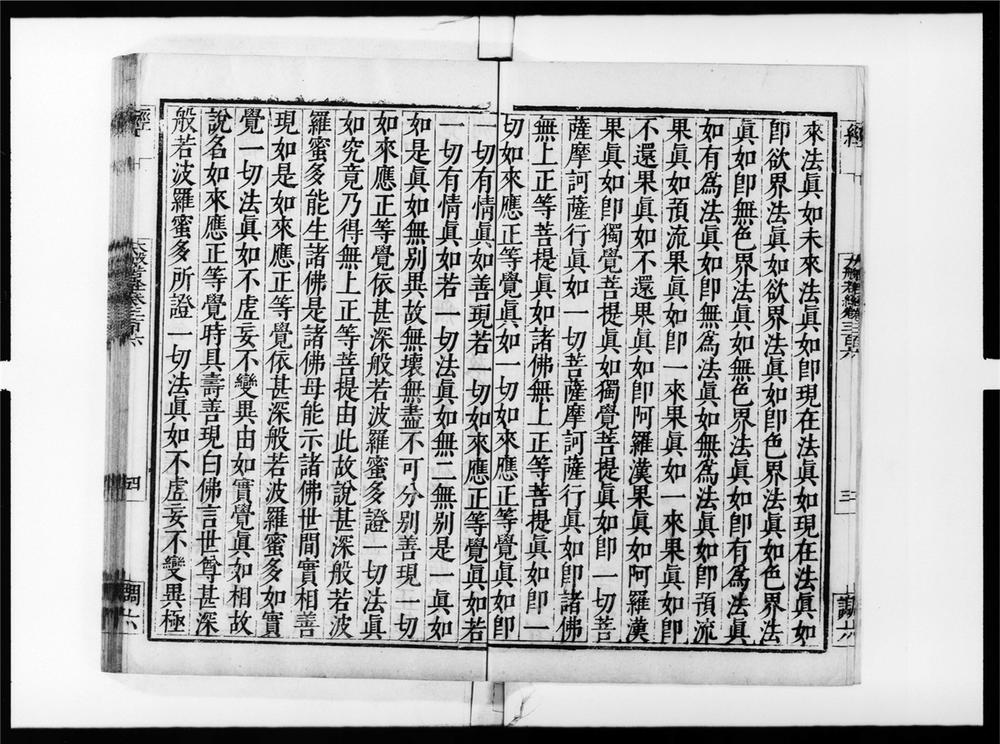 經
大般若經卷三百六
三
調六
來法眞如未來法眞如卽現在法眞如現在法眞如
卽欲界法眞如欲界法眞如卽色界法眞如色界法
眞如卽無色界法眞如無色界法眞如卽有爲法眞
如有爲法眞如卽無爲法眞如無爲法眞如卽預流
果眞如預流果眞如卽一來果眞如一來果眞如卽
不還果眞如不還果眞如卽阿羅漢果眞如阿羅漢
果眞如卽獨覺菩提眞如獨覺菩提眞如卽一切菩
薩摩訶薩行眞如一切菩薩摩訶薩行眞如卽諸佛
無上正等菩提眞如諸佛無上正等菩提眞如卽一
切如來應正等覺眞如一切如來應正等覺眞如卽
一切有情眞如善現若一切如來應正等覺眞如若
一切有情眞如若一切法眞如無二無別是一眞如
如是眞如無別異故無壞無盡不可分別善現一切
如來應正等覺依甚深般若波羅蜜多證一切法眞
如究竟乃得無上正等菩提由此故說甚深般若波
羅蜜多能生諸佛是諸佛母能示諸佛世間實相善
現如是如來應正等覺依甚深般若波羅蜜多如實
覺一切法眞如不虛妄不變異由如實覺眞如相故
說名如來應正等覺時具壽善現白佛言世尊甚深
般若波羅蜜多所證一切法眞如不虛妄不變異極
經
大般若經卷三百六
四
調六